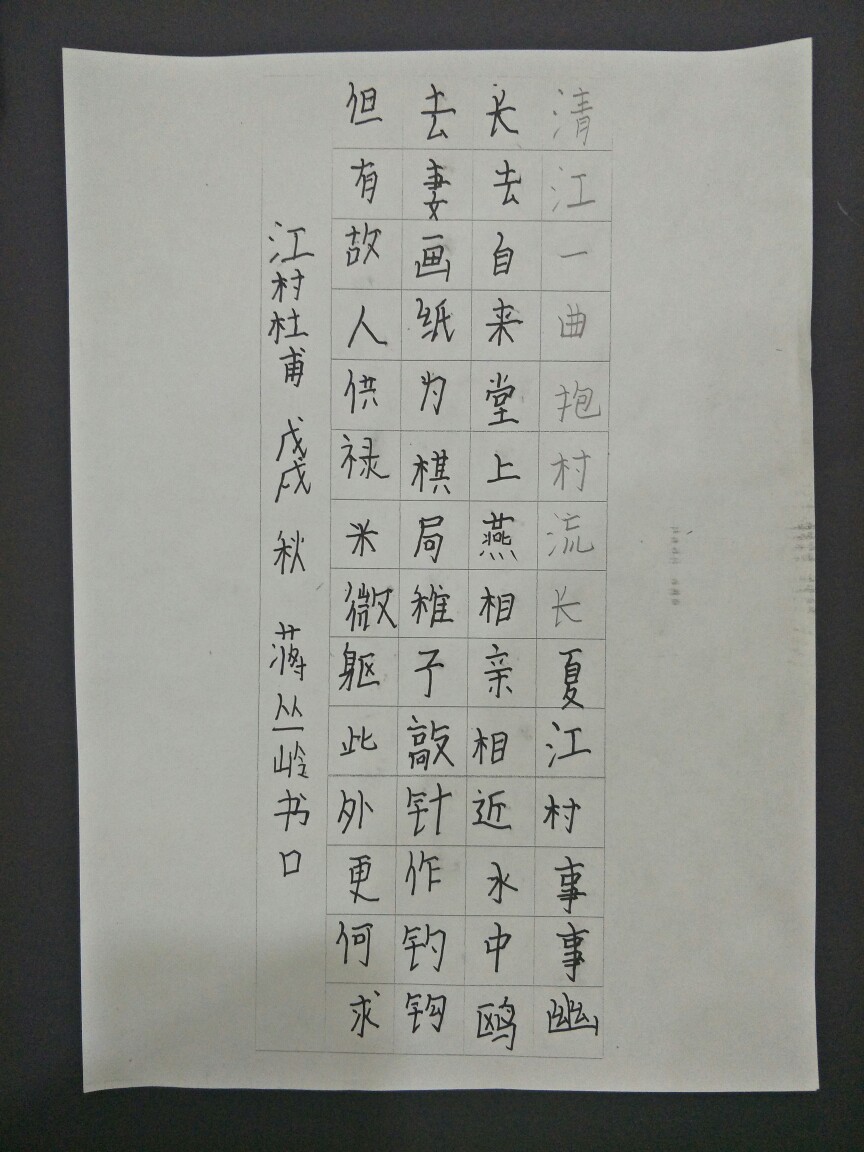 清江一曲抱村流长夏江村事事幽
长去自来堂上燕相亲相近水中鸥
去妻画纸为棋局稚子敲针作钓钩
但有故人供禄米微躯此外更何求
江村杜甫 戊戌 秋 蒋丛岭书口